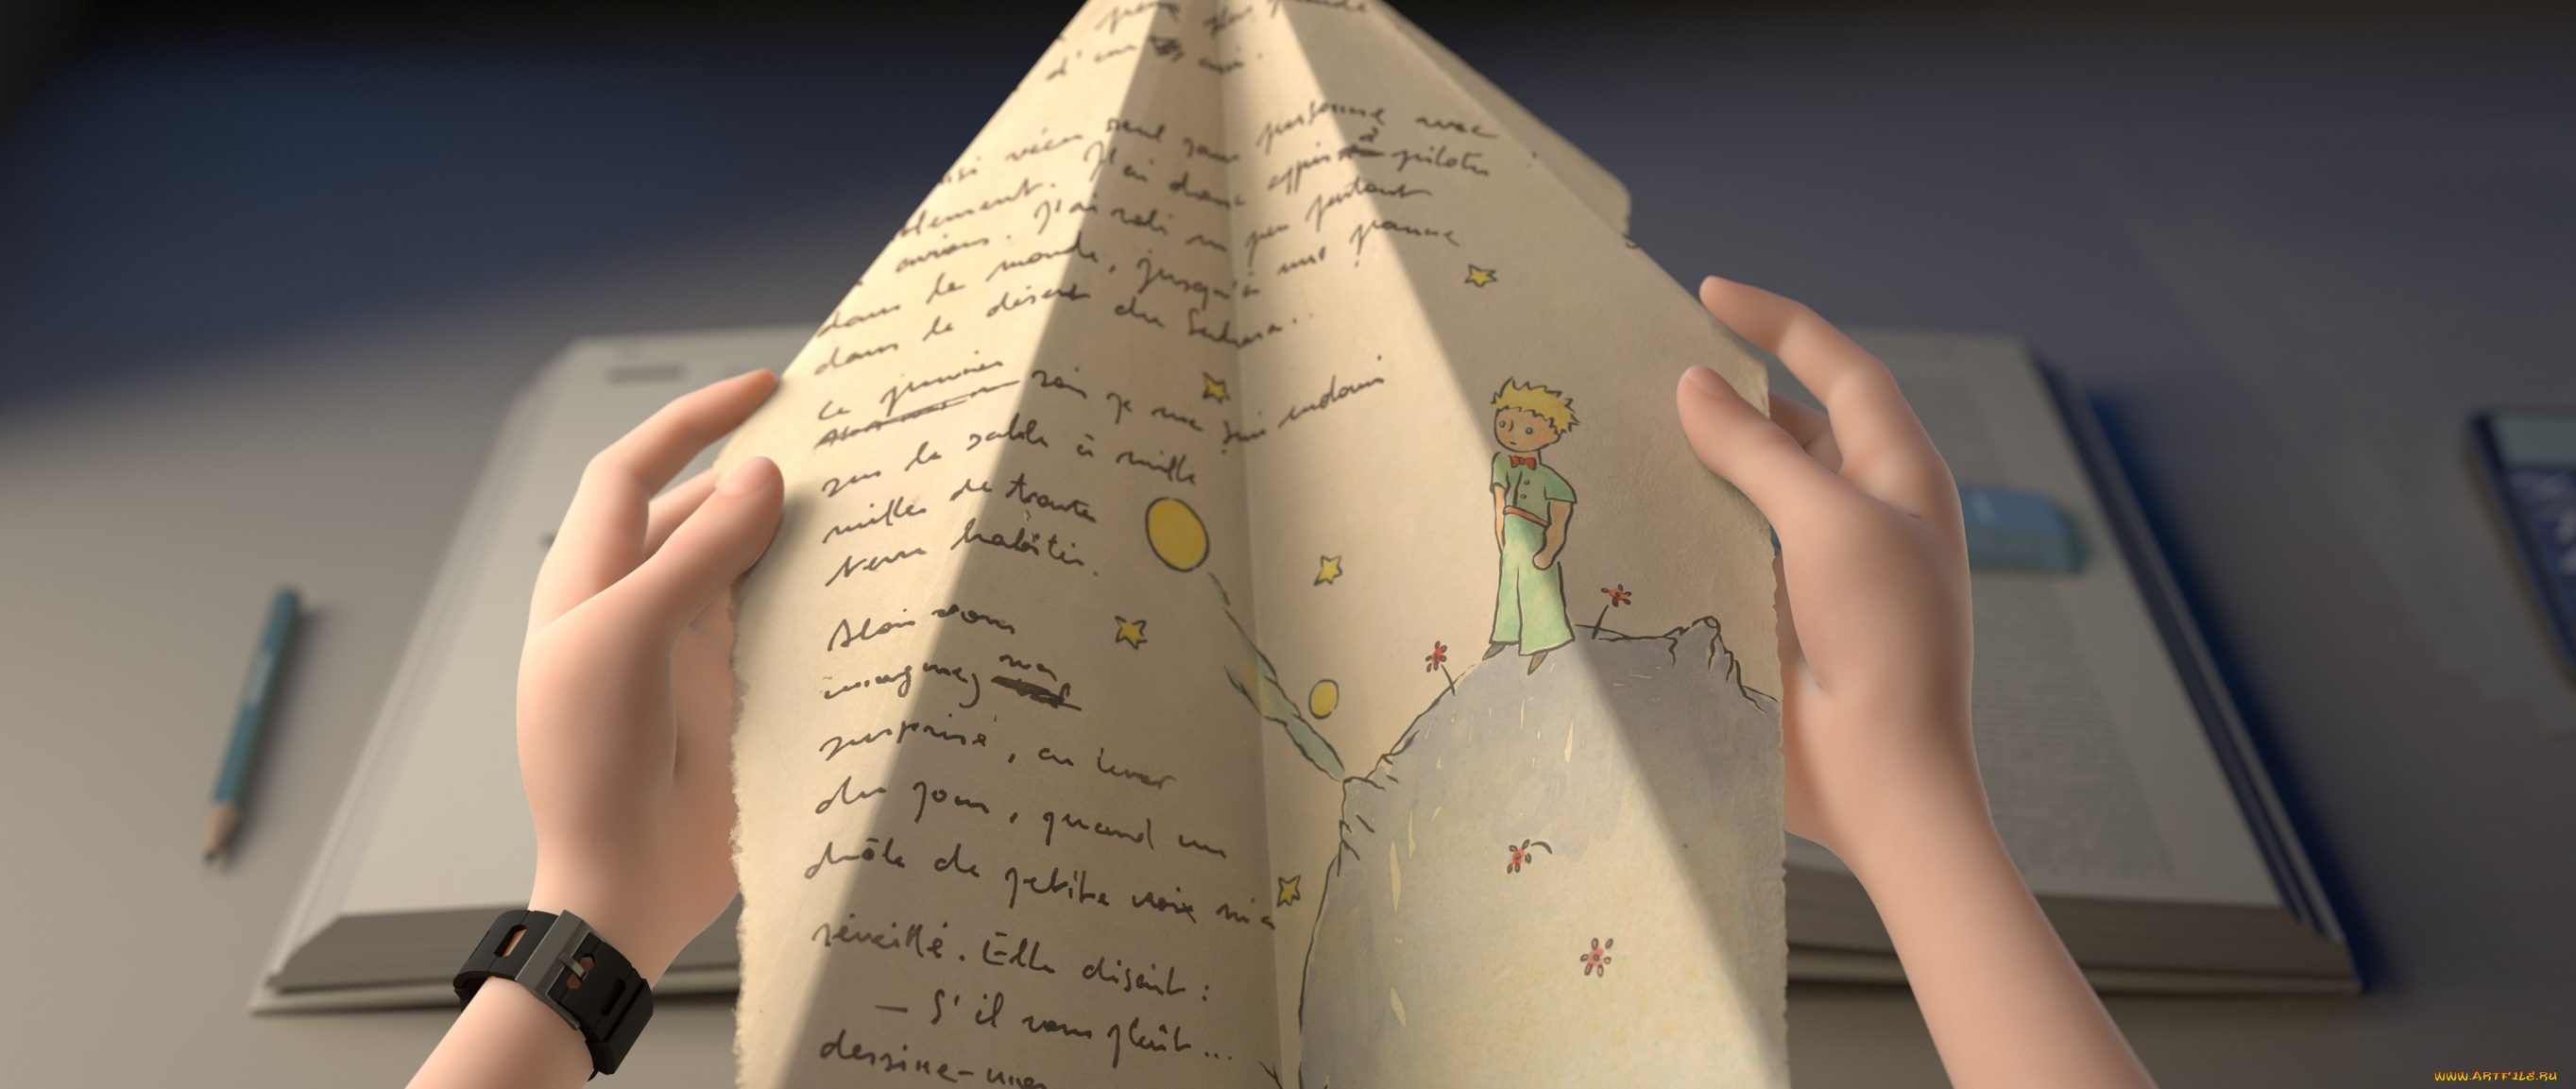 plus grande
d'un
ai vécu seul sans personne avec
J'ai donc appris à piloter
avions. J'ai volé un peu partout
dans le monde, jusqu'à une panne
dans le désert du Sahara..
Le premier soir je me suis endormi
sur le sable à mille
milles de toute
terre habitée.
Alors vous
imaginez ma
surprise, au lever
du jour, quand une
drôle de petite voix m'a
réveillé. Elle disait :
— S'il vous plaît...
dessine-moi
WWW.ARTFILE.RU